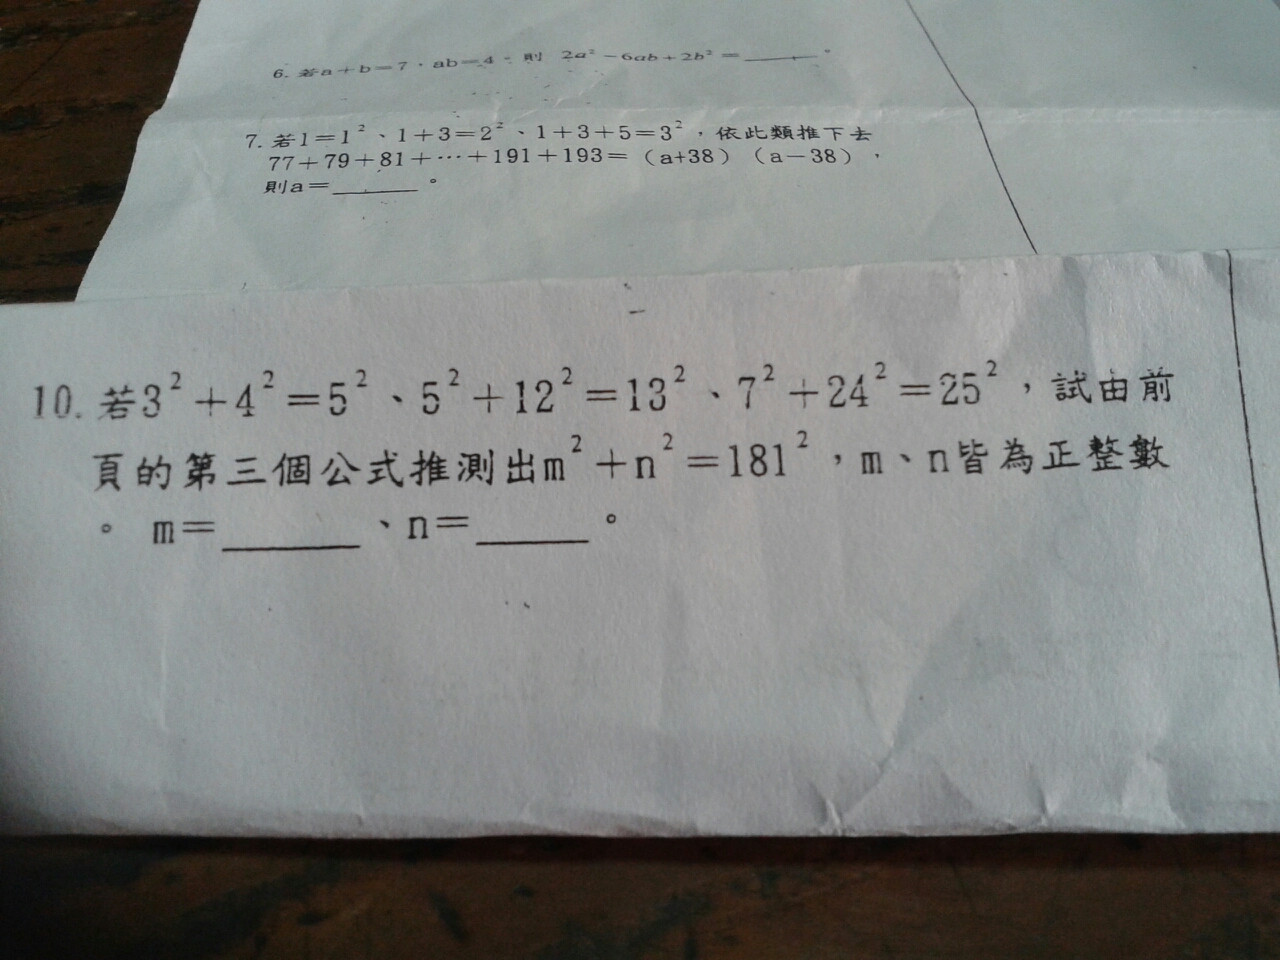 6. 若a+b=7，ab=4，則 2a²−6ab+2b²=_____。
7. 若1=1²、1+3=2²、1+3+5=3²，依此類推下去
77+79+81+⋯+191+193=（a+38）（a−38），
則a=______。
10. 若3²+4²=5²、5²+12²=13²、7²+24²=25²，試由前
頁的第三個公式推測出m²+n²=181²，m、n皆為正整數
。 m=______、n=_____。